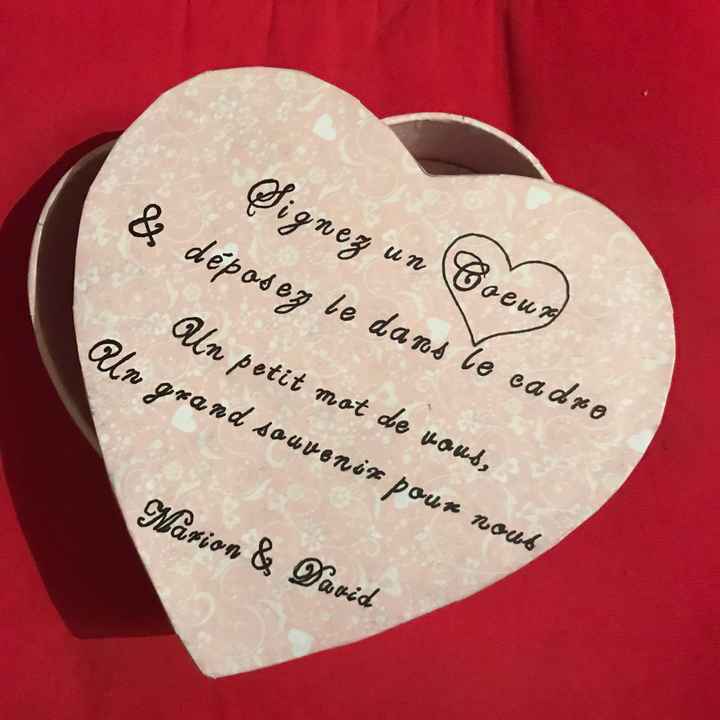 Signez un Coeur
& déposez le dans le cadre
Un petit mot de vous,
Un grand souvenir pour nous
Marion & David